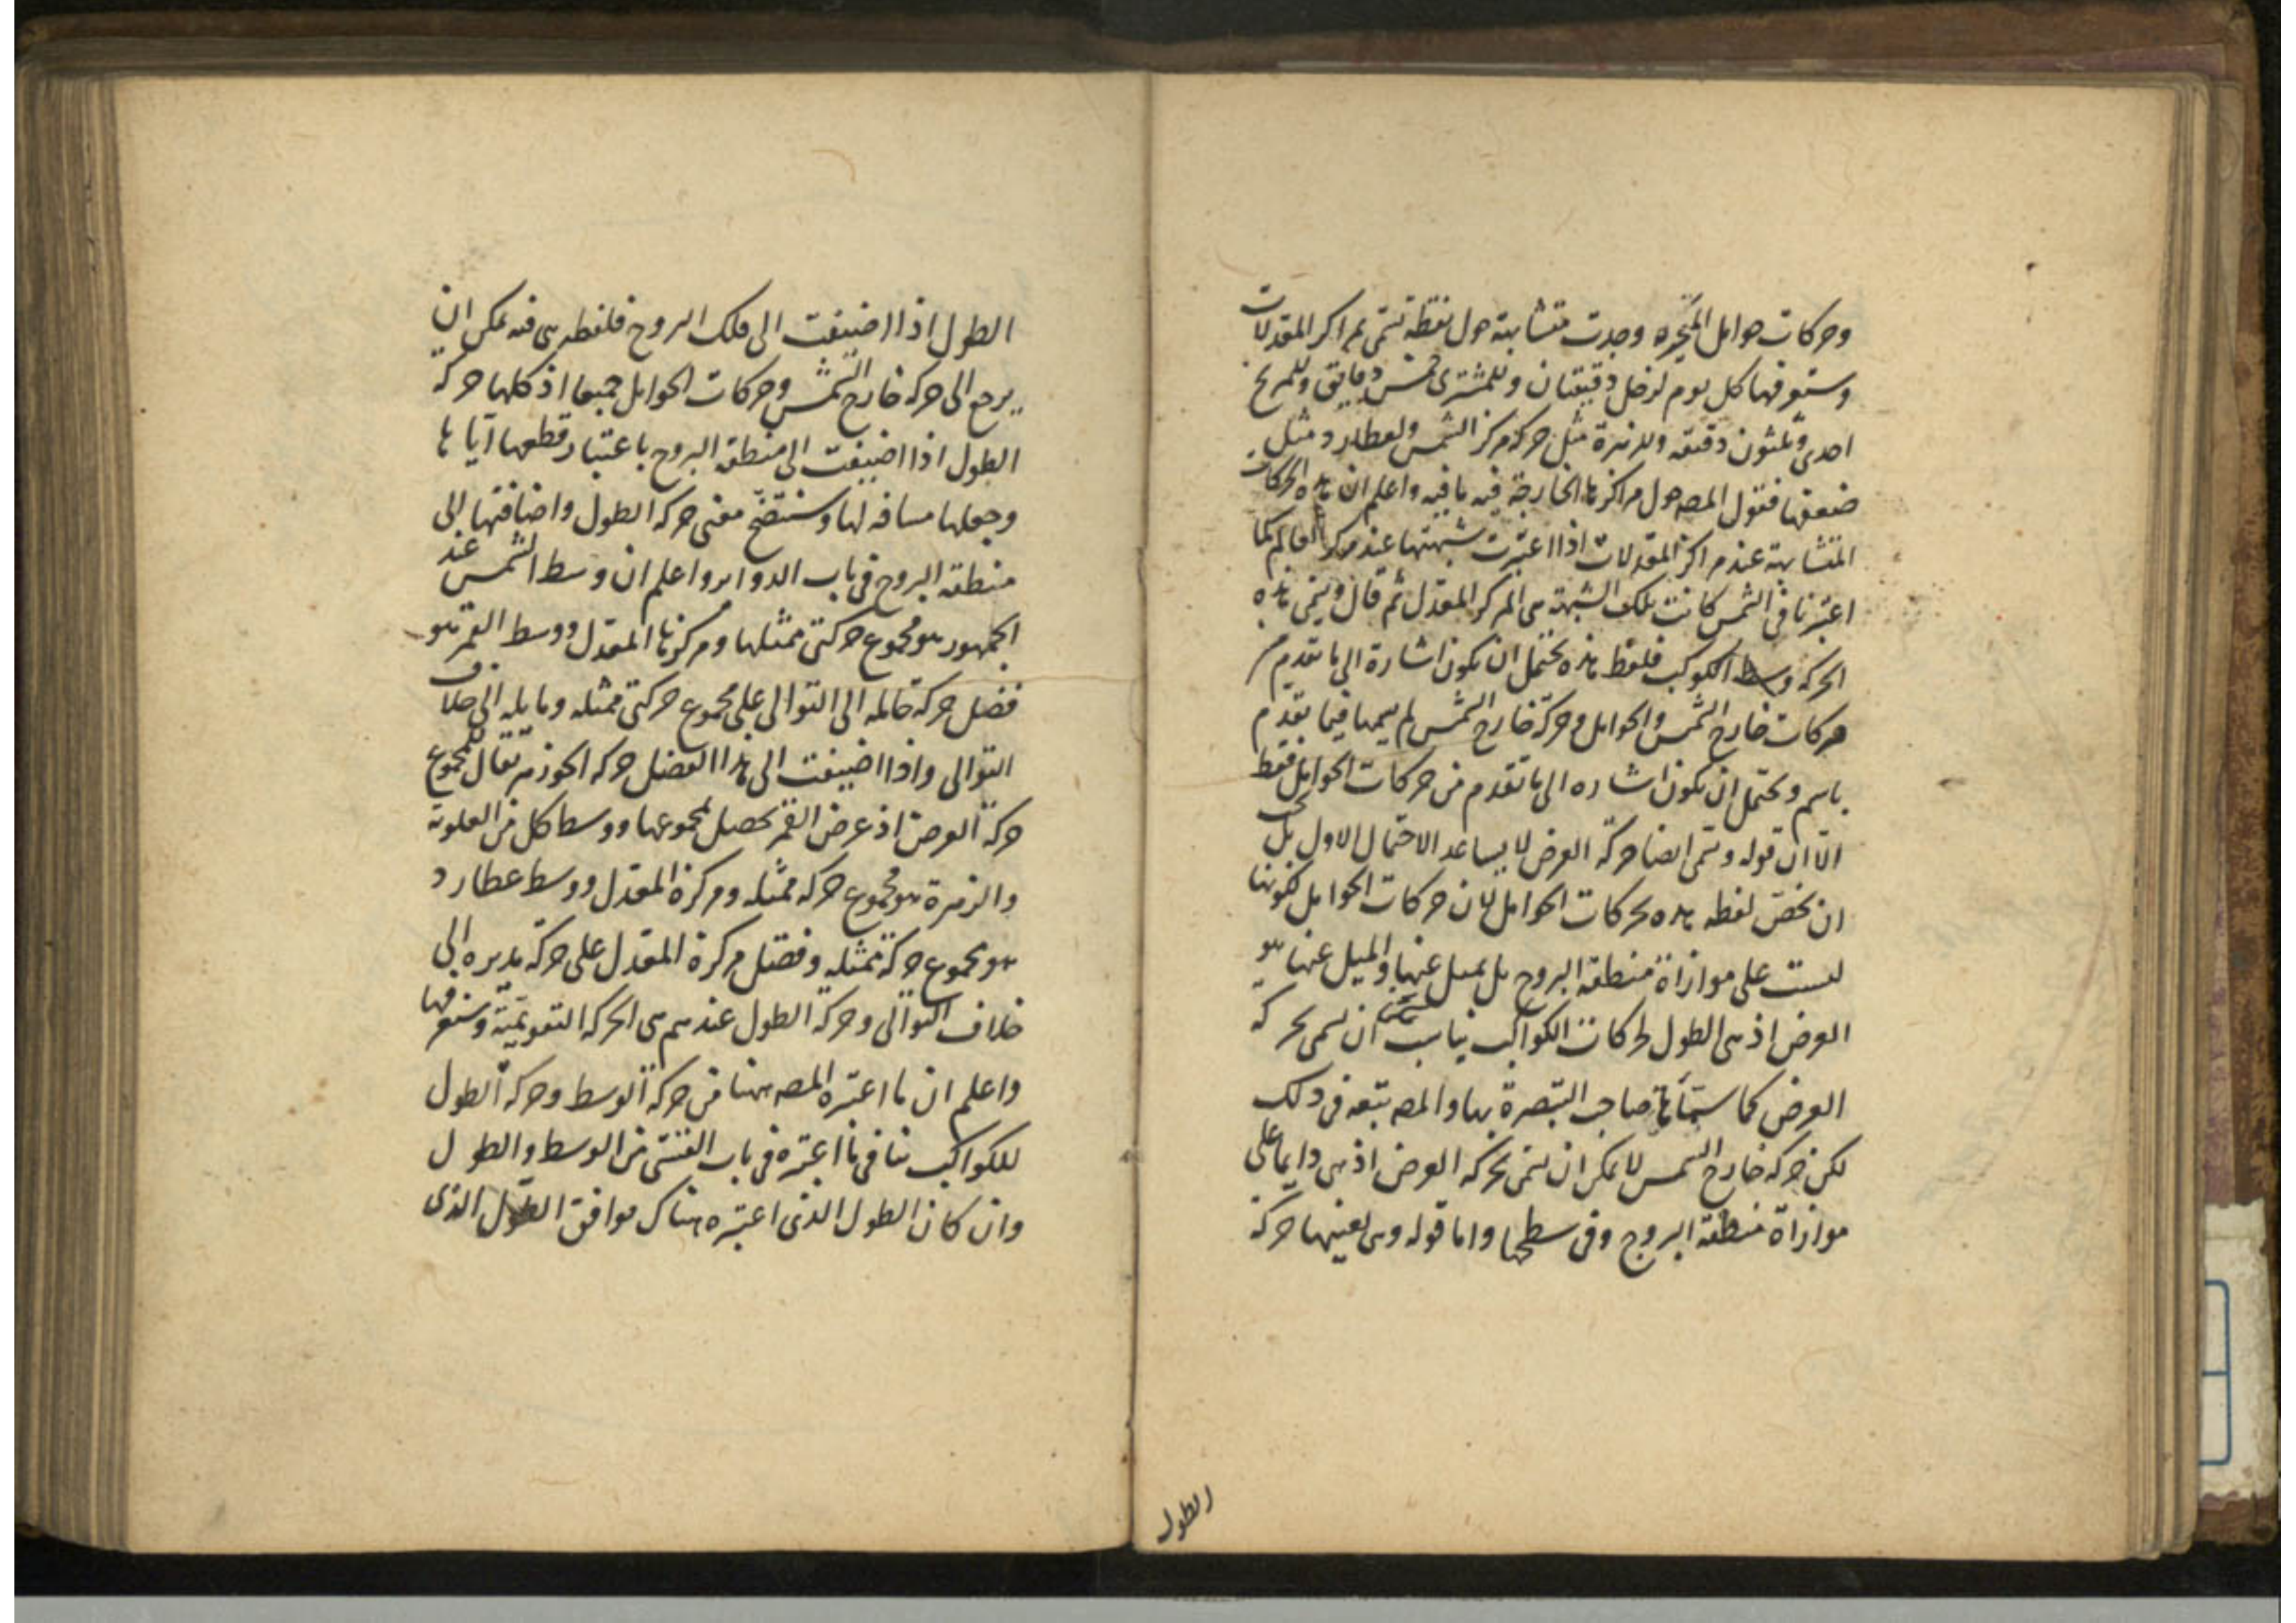 وحركات حوامل المتحيرة وجدت متشابهة حول نقطة تسمى مراكز المعدلات
وستعرفها كل يوم لزحل دقيقتان وللمشترى خمس دقايق وللمريخ
احدى وثلثون دقيقه وللزهرة مثل حركة مركز الشمس ولعطارد مثل
ضعفها فقول المصه حول مراكزها الخارجة فيه ما فيه واعلم ان هذه الحركات
المتشابهة عند مراكز المعدلات اذا اعتبرت شبهتها عند مركز العالم كما
اعتبرنا فى الشمس كانت تلك الشبهة هى المركز المعدل ثم قال ويسمى هذه
الحركه وسط الكوكب فلفظ هذه يحتمل ان يكون اشارة الى ما تقدم من
حركات خارج الشمس والحوامل وحركة خارج الشمس لم يسمها فيما تقدم
باسم ويحتمل ان يكون اشاره الى ما تقدم من حركات الحوامل فقط
الا ان قوله وتسمى ايضا حركة العرض لا يساعد الاحتمال الاول بل يجب
ان يخص لفظه هذه بحركات الحوامل لان حركات الحوامل لكونها
ليست على موازاة منطقة البروج بل يميل عنها والميل عنها هو
العرض اذ هى الطول لحركات الكواكب يناسب ان يسمى بحركة
العرض كما سماها صاحب التبصرة بها والمصه تبعه فى ذلك
لكن حركه خارج الشمس لا يمكن ان يسمى بحركه العرض اذ هى دايما على
موازاة منطقة البروج وفى سطحها واما قوله وهى بعينها حركة
الطول
الطول اذا اضيفت الى فلك البروج فلفطه هى فيه يمكن ان
يرجع الى حركه خارج الشمس وحركات الحوامل جميعا اذ كلها حركة
الطول اذا اضيفت الى منطقة البروج باعتبار قطعها اياها
وجعلها مسافه لها وستتضح معنى حركه الطول واضافتها الى
منطقة البروج فى باب الدواير واعلم ان وسط الشمس عند
الجمهور هو مجموع حركتى ممثلها ومركزها المعدل ووسط القمر هو
فضل حركة حامله الى التوالى على مجموع حركتى ممثله ومايله الى خلاف
التوالى واذا اضيفت الى هذا الفضل حركه الجوزهر يقال للمجموع
حركة العرض اذ عرض القمر يحصل بمجموعها ووسط كل من العلوية
والزهرة هو مجموع حركه ممثله ومركزه المعدل ووسط عطارد
هو مجموع حركة ممثله وفضل مركزه المعدل على حركة مديره الى
خلاف التوالى وحركة الطول عندهم هى الحركه التقويمية وستعرفها
واعلم ان ما اعتبره المصه ههنا من حركة الوسط وحركة الطول
للكواكب ينافى ما اعتبره فى باب من الوسط والطول
وان كان الطول الذى اعتبره هناك موافق الطول الذى